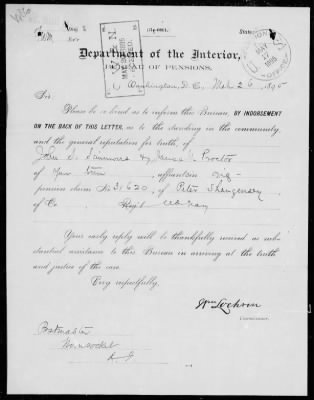 Department of the Interior,
BUREAU OF PENSIONS,
Washington, D. C., Mch 26, 1895
Sir:
Please be so kind as to inform this Bureau, BY INDORSEMENT
ON THE BACK OF THIS LETTER, as to the standing in the community
and the general reputation for truth, of
John S. Simmons & James Proctor
of your town, affiants in orig
pension claim No. 31620, of Peter
of Co. , Reg't US Navy
Your early reply will be thankfully received as sub-
stantial assistance to this Bureau in arriving at the truth
and justice of the case.
Very respectfully,
Wm Lochren
Commissioner.
Postmaster
Woonsocket
R I